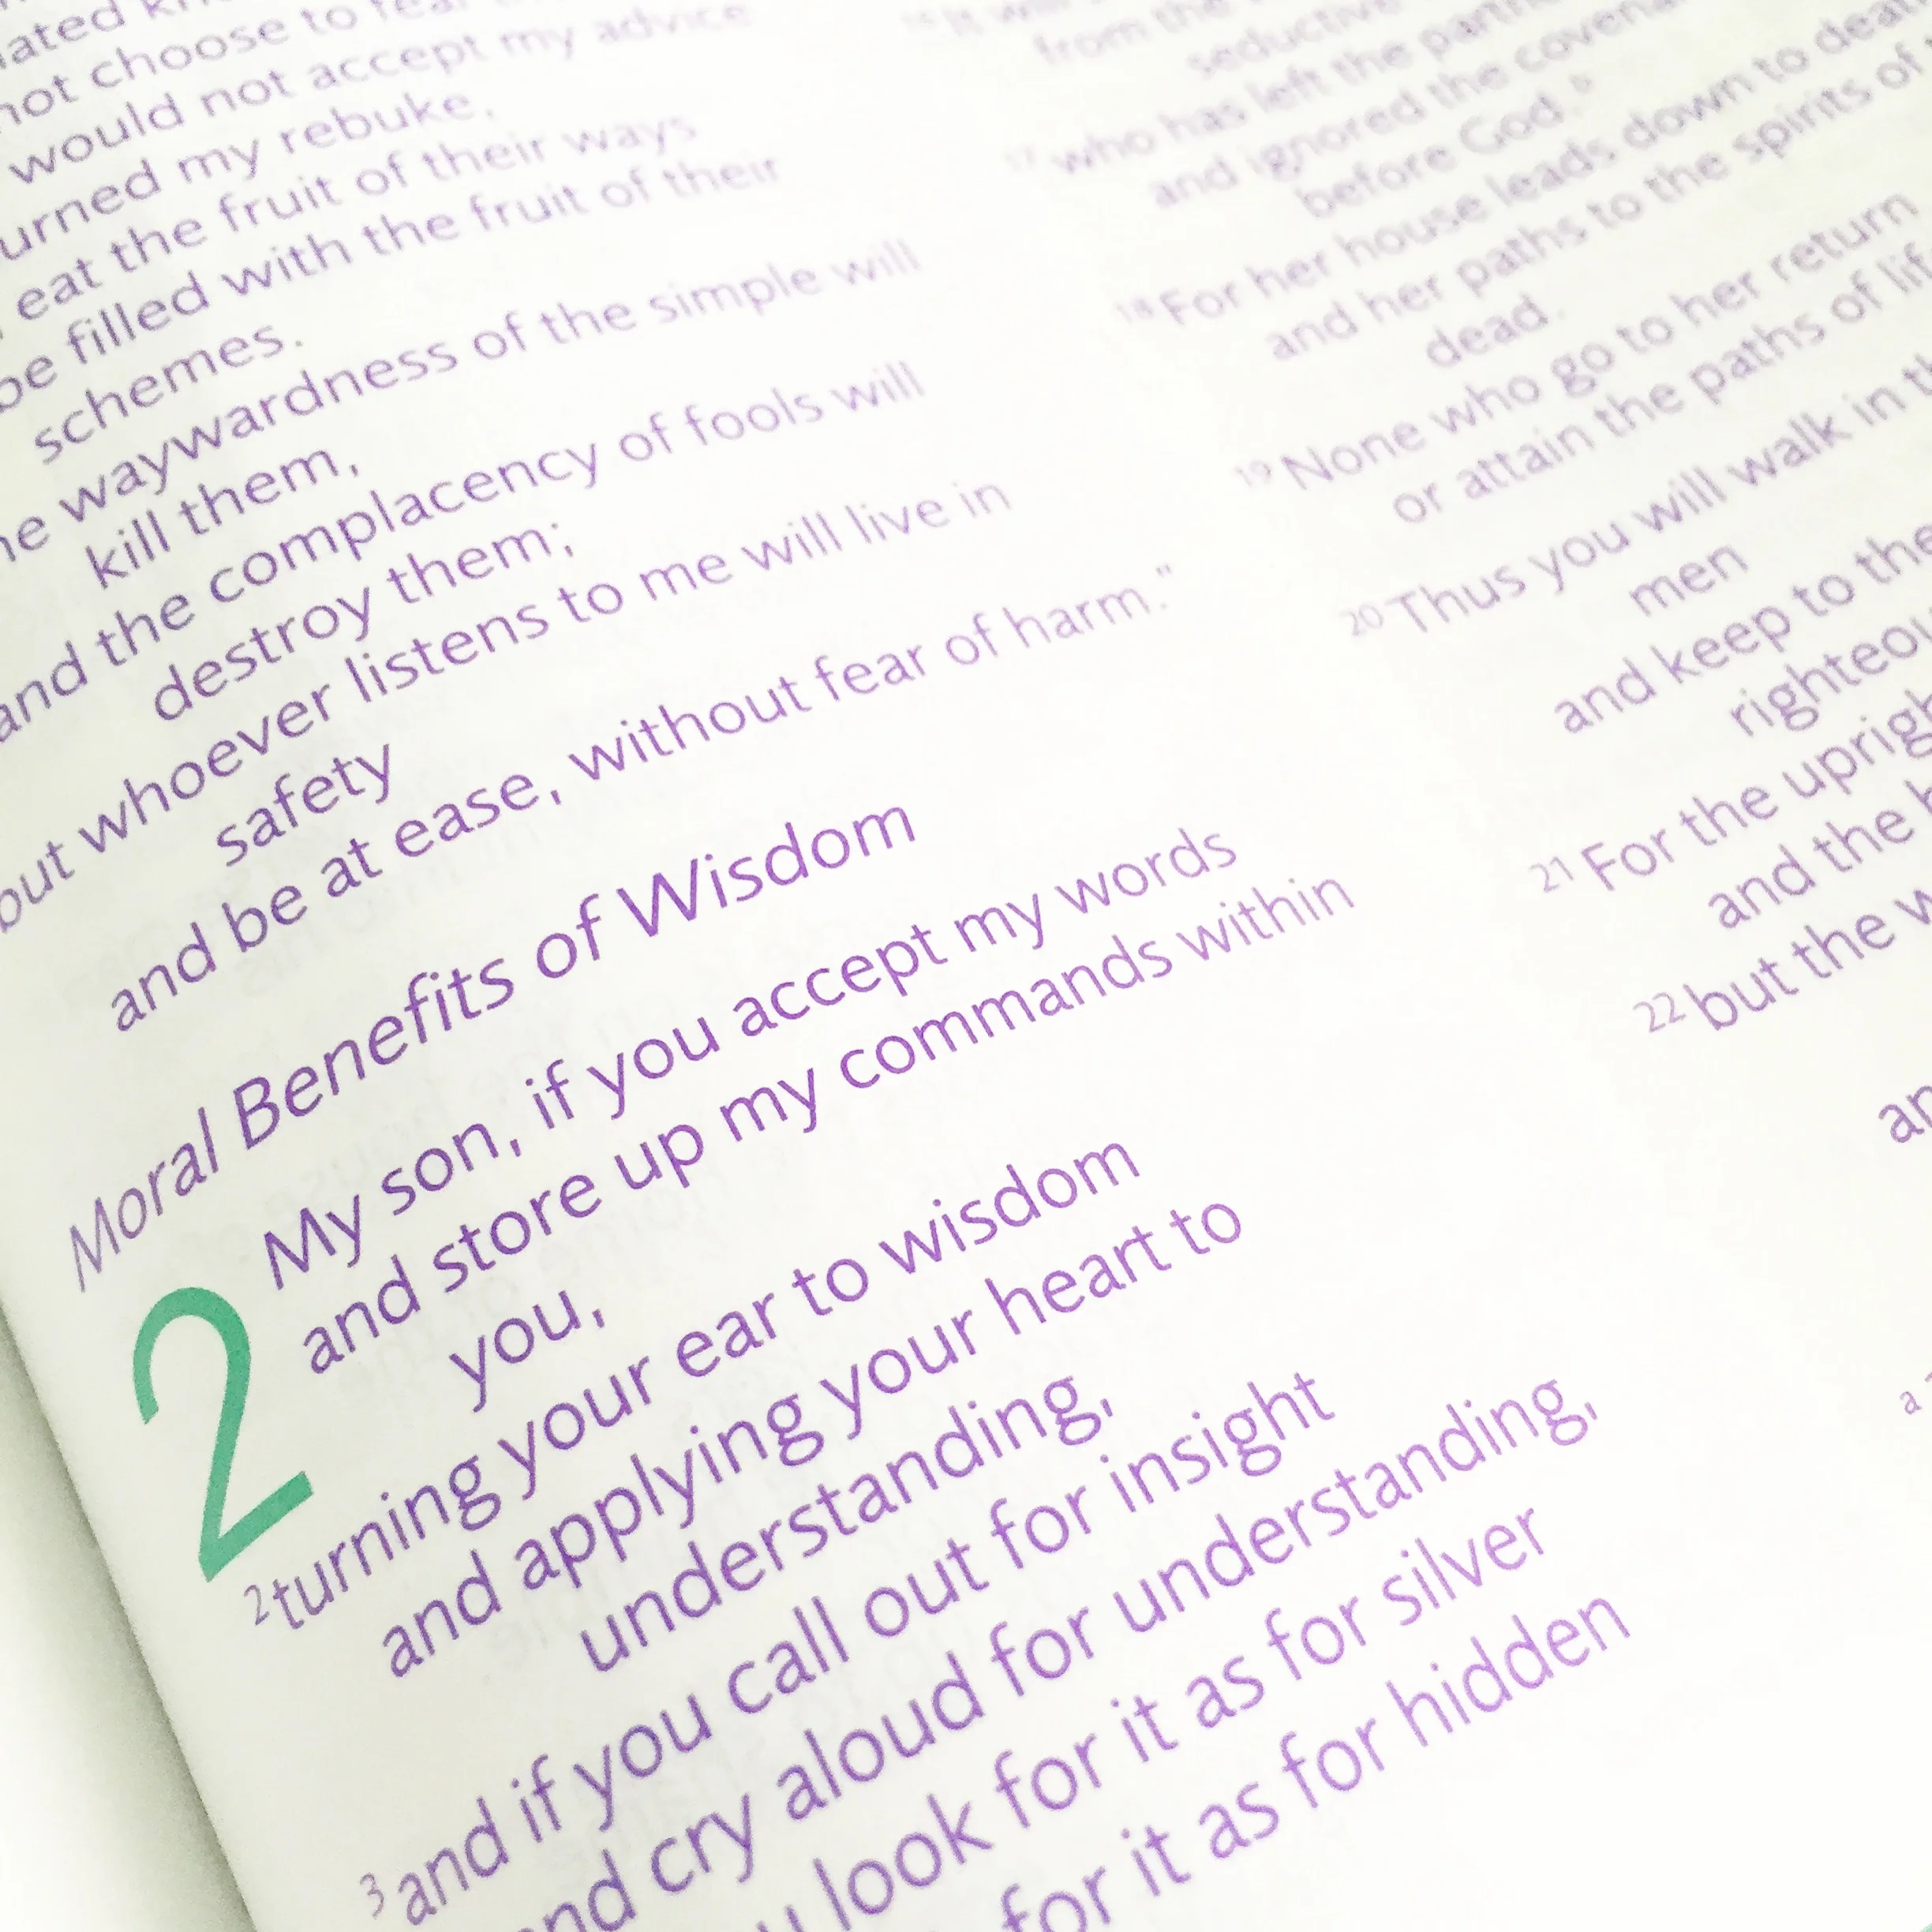 not choose to fear
would not accept my advice
urned my rebuke,
eat the fruit of their ways
be filled with the fruit of their
schemes.
he waywardness of the simple will
kill them,
and the complacency of fools will
destroy them;
but whoever listens to me will live in
safety
and be at ease, without fear of harm."
Moral Benefits of Wisdom
2
My son, if you accept my words
and store up my commands within
you,
2 turning your ear to wisdom
and applying your heart to
understanding,
3 and if you call out for insight
nd cry aloud for understanding,
look for it as for silver
for it as for hidden
16 It will
from the
seductive
17 who has left the partn
and ignored the covena
before God.
18 For her house leads down to death
and her paths to the spirits of
dead.
19 None who go to her return
or attain the paths of lif
20 Thus you will walk in th
men
and keep to the
righteou
21 For the uprigh
and the b
22 but the w
an
a